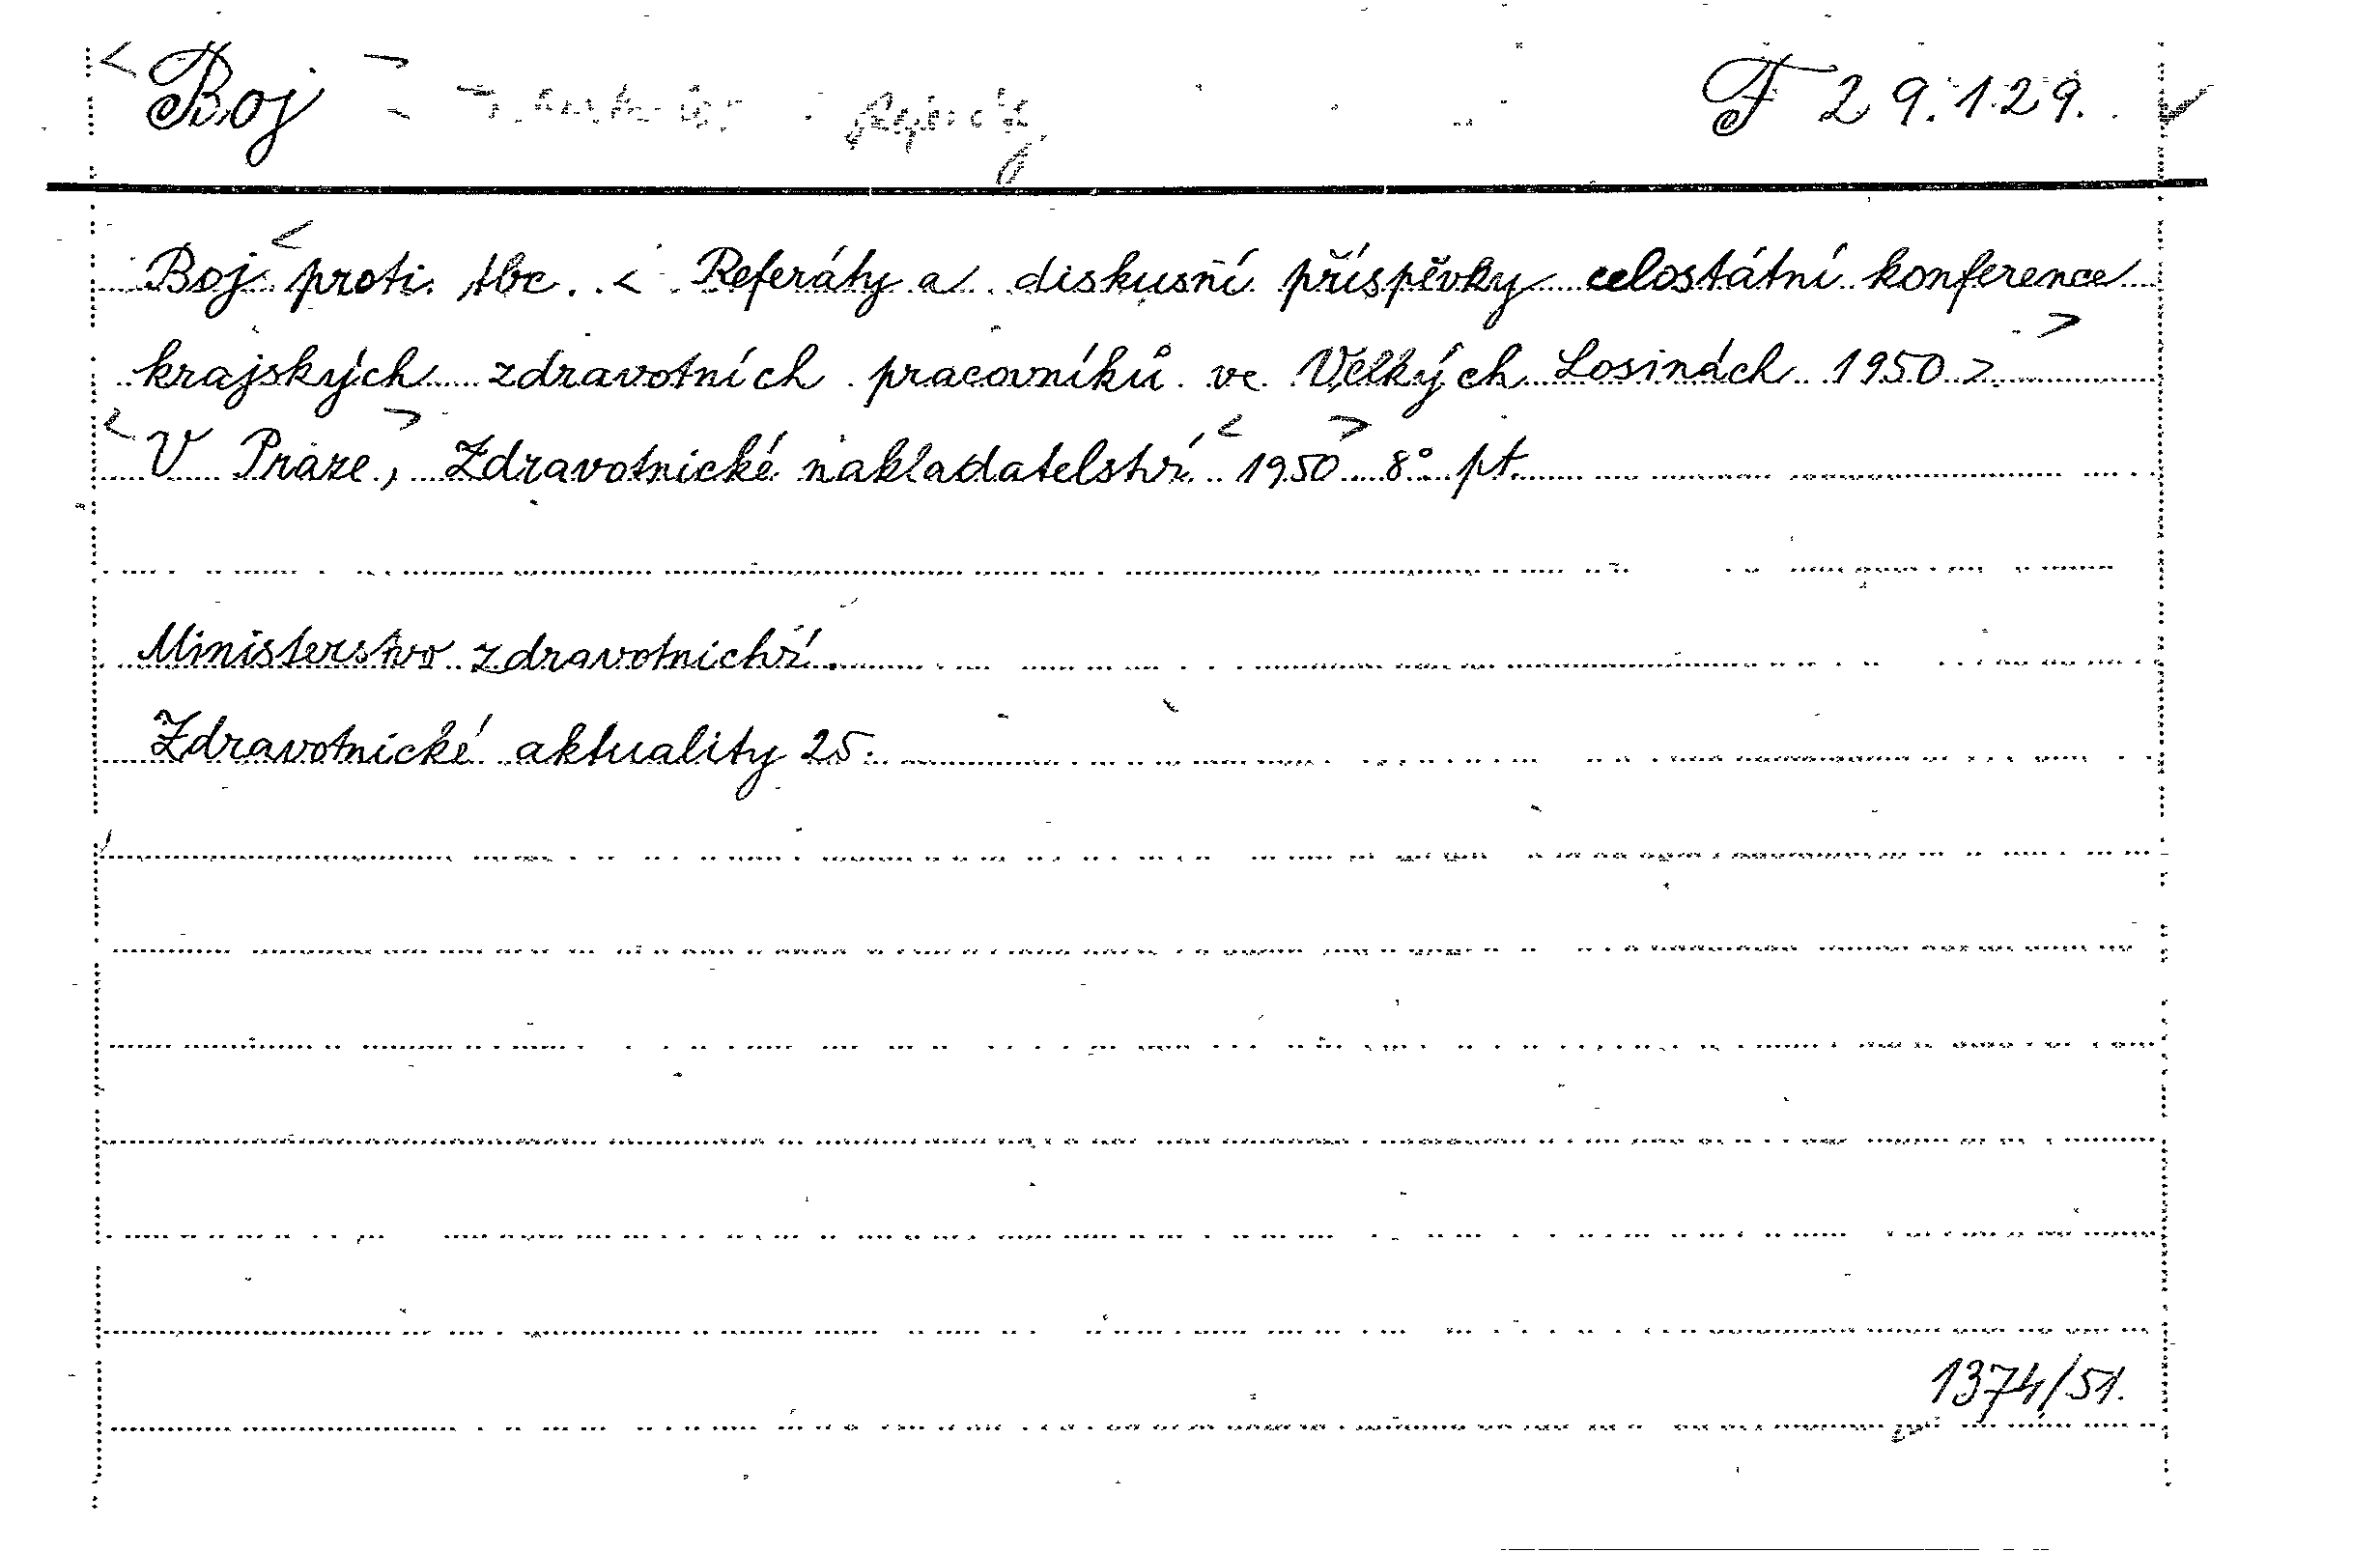 < Boj > F 29.129.
Boj < proti tbc. < Referáty a diskusní příspěvky celostátní konference
krajských zdravotních pracovníků ve Velkých Losinách 1950 > >
< V Praze, > Zdravotnické nakladatelství < 1950 > 8° pt.
Ministerstvo zdravotnictví.
Zdravotnické aktuality 25.
1374/51.